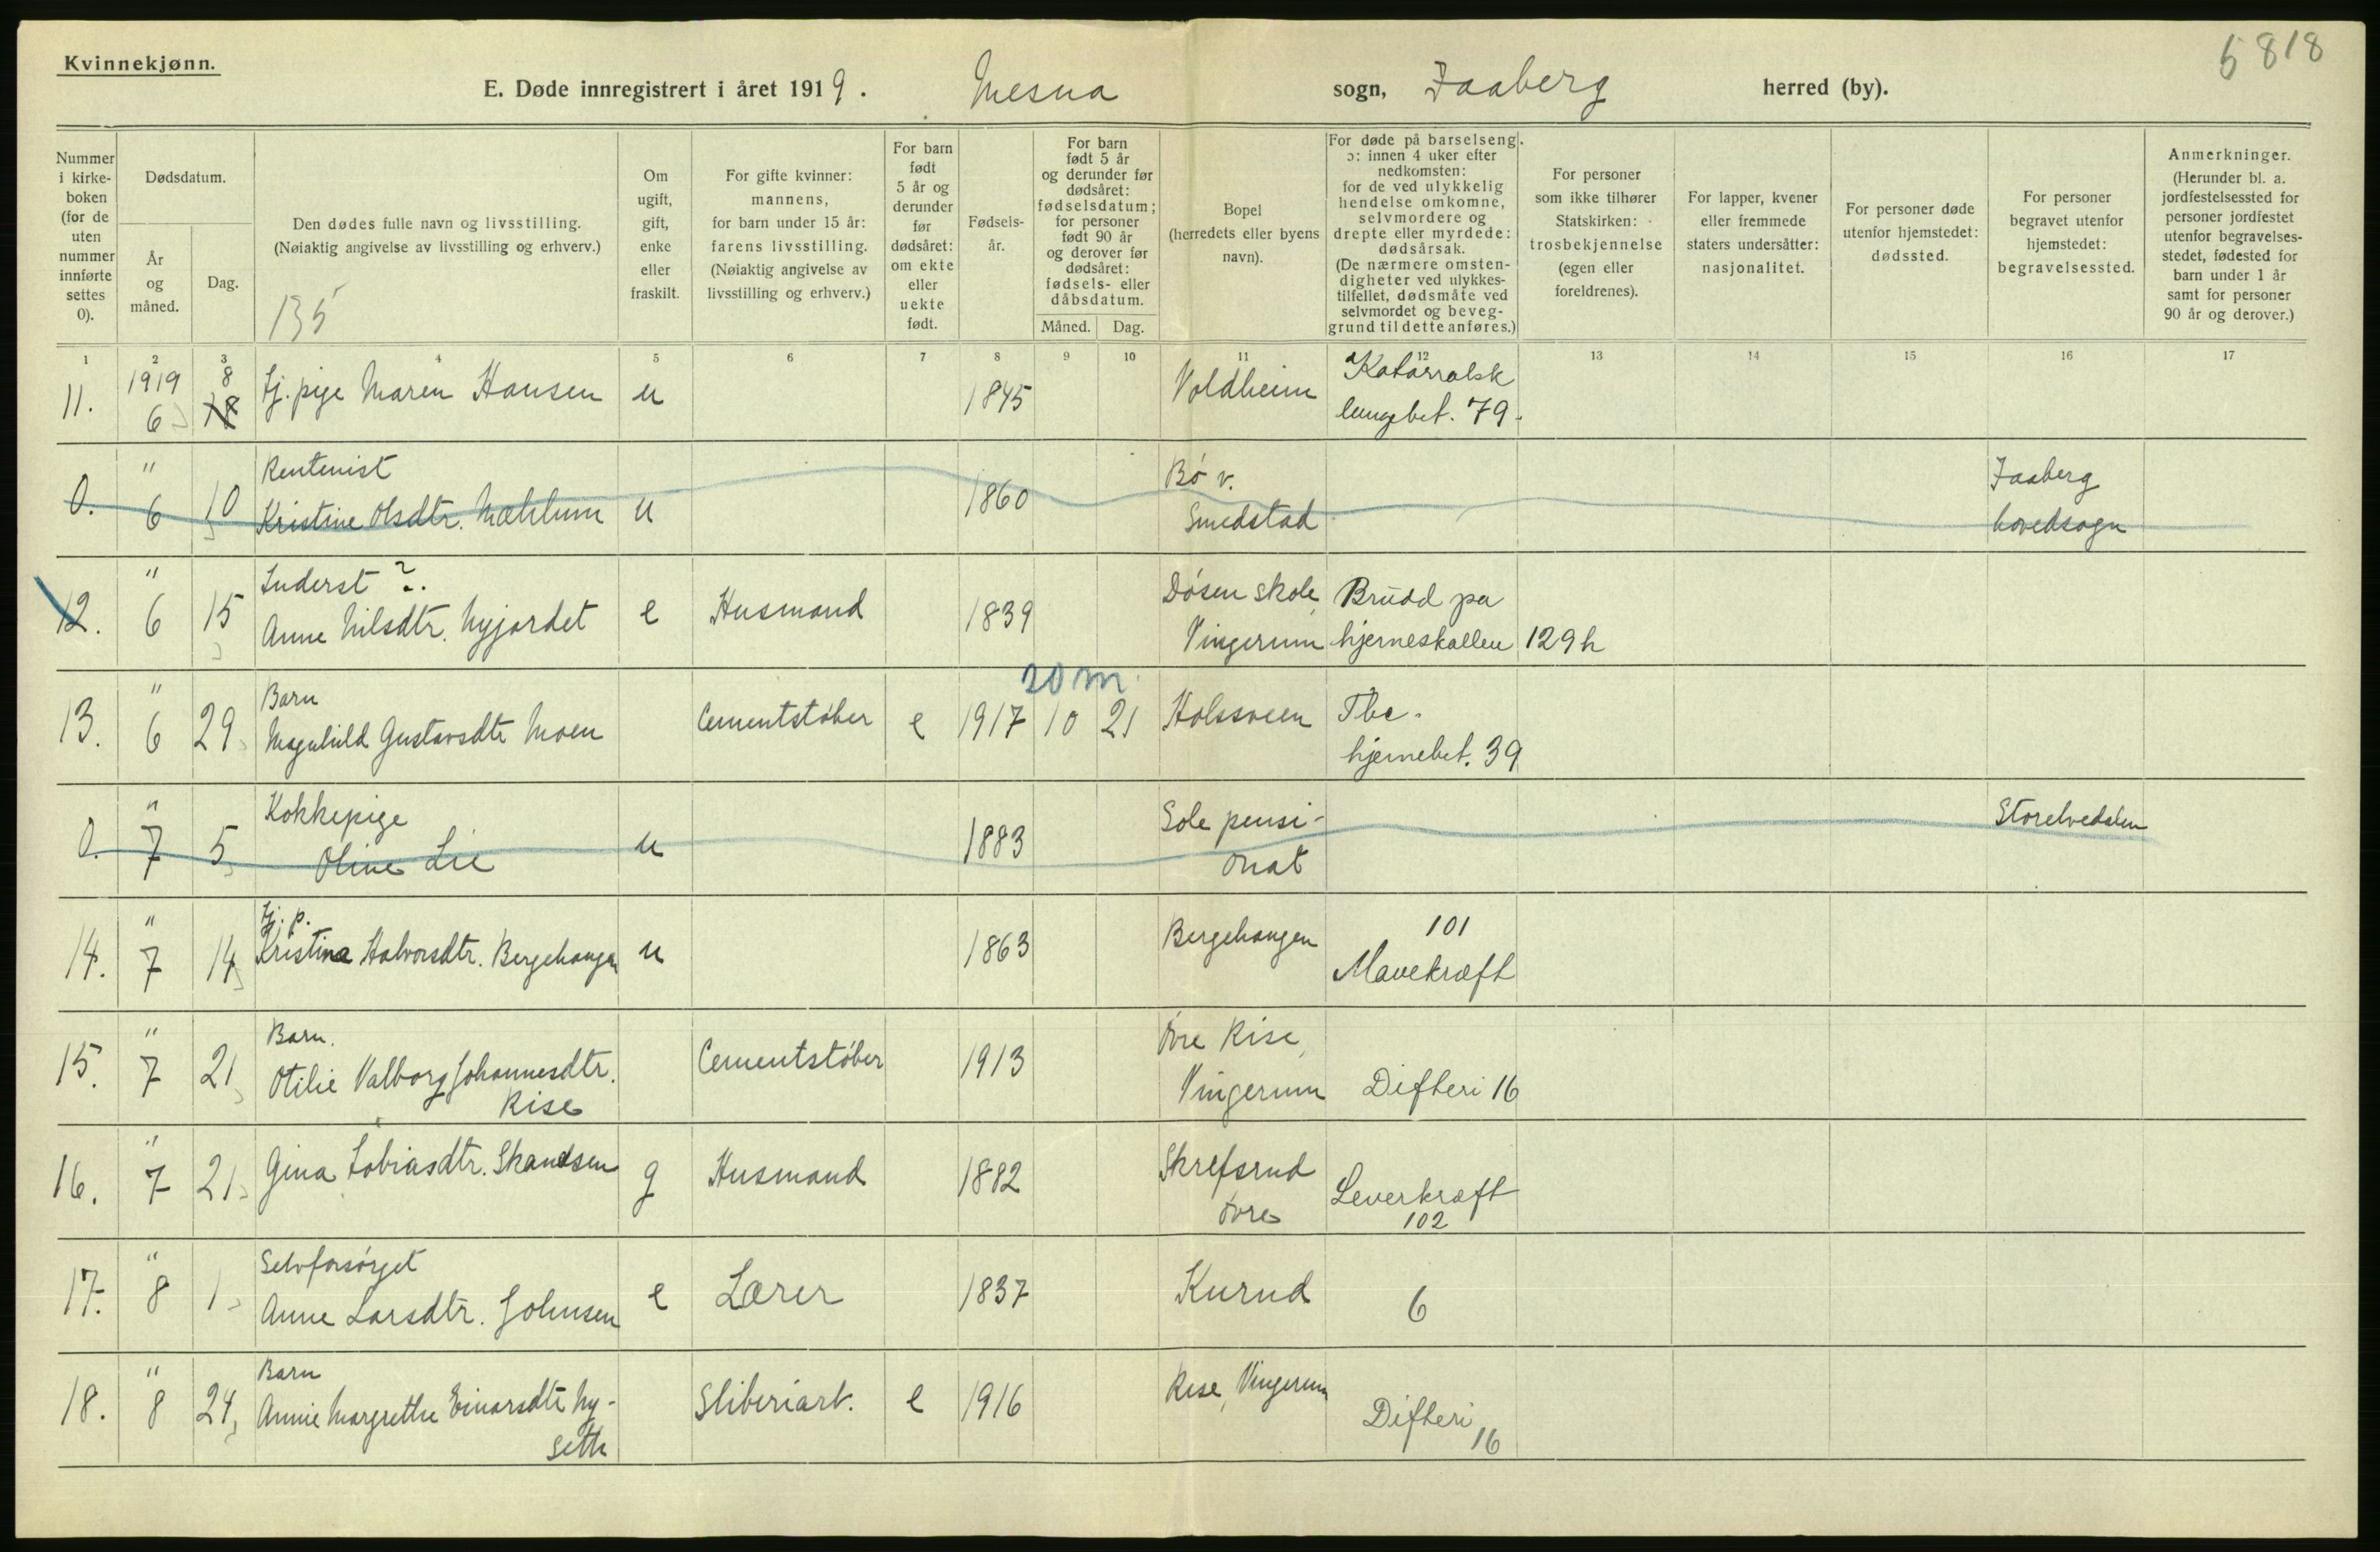 Kvinnekjønn.
5818
E. Døde innregistrert i året 1919. Mesna sogn, Faaberg herred (by).
Nummer i kirke-boken (for de uten nummer innførte settes 0).
Dødsdatum.
År og måned.
Dag.
Den dødes fulle navn og livsstilling.
(Nøiaktig angivelse av livsstilling og erhverv.)
135
Om ugift, gift, enke eller fraskilt.
For gifte kvinner: mannens, for barn under 15 år: farens livsstilling. (Nøiaktig angivelse av livsstilling og erhverv.)
For barn født 5 år og derunder før dødsåret: om ekte eller uekte født.
Fødsels-år.
For barn født 5 år og derunder før dødsåret: fødselsdatum; for personer født 90 år og derover før dødsåret: fødsels- eller dåbsdatum.
Måned. Dag.
Bopel (herredets eller byens navn).
For døde på barselseng. ɔ: innen 4 uker efter nedkomsten: for de ved ulykkelig hendelse omkomne, selvmordere og drepte eller myrdede: dødsårsak. (De nærmere omsten-digheter ved ulykkes-tilfellet, dødsmåte ved selvmordet og beveg-grund til dette anføres.)
For personer som ikke tilhører Statskirken: trosbekjennelse (egen eller foreldrenes).
For lapper, kvener eller fremmede staters undersåtter: nasjonalitet.
For personer døde utenfor hjemstedet: dødssted.
For personer begravet utenfor hjemstedet: begravelsessted.
Anmerkninger. (Herunder bl. a. jordfestelsessted for personer jordfestet utenfor begravelses-stedet, fødested for barn under 1 år samt for personer 90 år og derover.)
1 2 3 4 5 6 7 8 9 10 11 12 13 14 15 16 17
11. 1919 6 8 18 Tj. pige Maren Hansen u 1845 Voldheim Katarralsk lungebet. 79.
0. " 6 10 Rentenist Kristine Olsdtr. Mæhlum u 1860 Bø v. Smedstad Faaberg hovedsogn
12. " 6 15 Inderst ?. Anne Nilsdtr. Nyjordet e Husmand 1839 Døsen skole, Vingerum Brudd pa hjerneskallen 129h
13. " 6 29 Barn Magnhild Gustavsdtr Moen Cementstøber e 1917 20 m 10 21 Holssveen Tbc. hjernebet. 39
0. " 7 5 Kokkepige Oline Lie u 1883 Sole pensi-onat Storelvedalen
14. " 7 14 Tj. p. Kristina Halvorsdtr. Bergehaugen u 1863 Bergehaugen 101 Mavekræft
15. " 7 21 Barn. Otilie Valborg Johannesdtr. Rise Cementstøber 1913 Øvre Rise, Vingerum Difteri 16
16. " 7 21 Gina Tobiasdtr. Skandsen g Husmand 1882 Skrefsrud øvre Leverkræft 102
17. " 8 1 Selvforsørget Anne Larsdtr. Johnsen e Lærer 1837 Kurud 6
18. " 8 24 Barn Annie Margrethe Einarsdtr Ny-seth Sliberiarb. e 1916 Rise, Vingerum Difteri 16